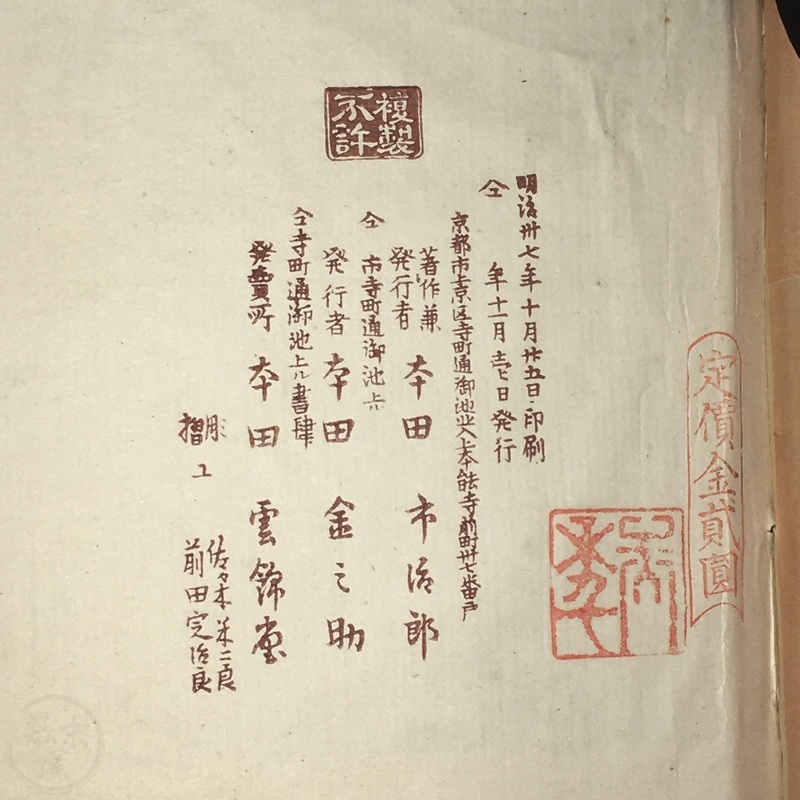 複製
不許
明治卅七年十月廿五日印刷
仝 年十一月壱日発行
京都市上京区寺町通御池
本能寺前町卅七番戸
著作兼
発行者 本田市治郎
仝 市寺町通御池上ル
発行者 本田金之助
仝寺町通御池上ル書肆
発賣所 本田雲錦堂
彫
摺工
佐々木米二良
前田定治良
定價金貳圓